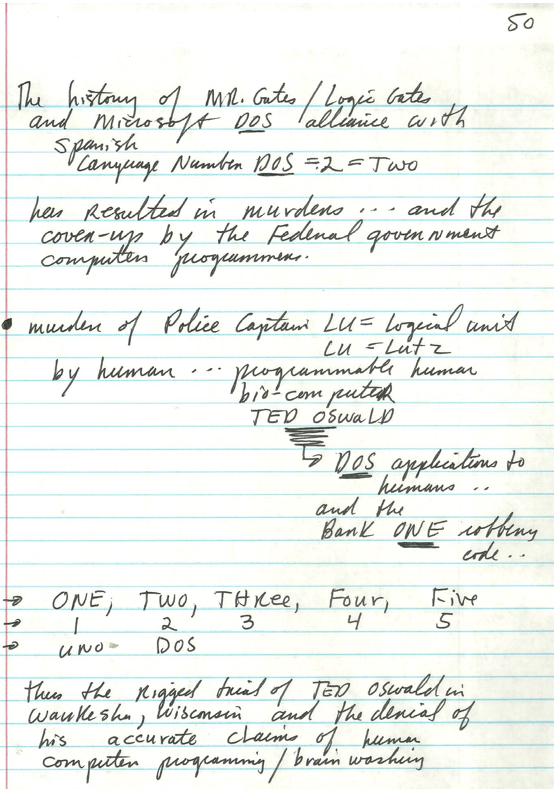 50
The history of MR. Gates / Logic Gates
and Microsoft DOS alliance with
Spanish
Language Number DOS = 2 = Two
has resulted in murders ... and the
cover-up by the Federal government
computer programmers.
• murder of Police Captain LU = Logical unit
LU = Lutz
by human ... programmable human
bio-computer
TED OSWALD
↳ DOS applications to
humans ..
and the
Bank ONE robbery
code ..
→ ONE, TWO, THRee, Four, Five
→ 1 2 3 4 5
→ UNO - DOS
thus the rigged trial of TED Oswald in
Waukesha, Wisconsin and the denial of
his accurate claims of human
computer programming / brain washing